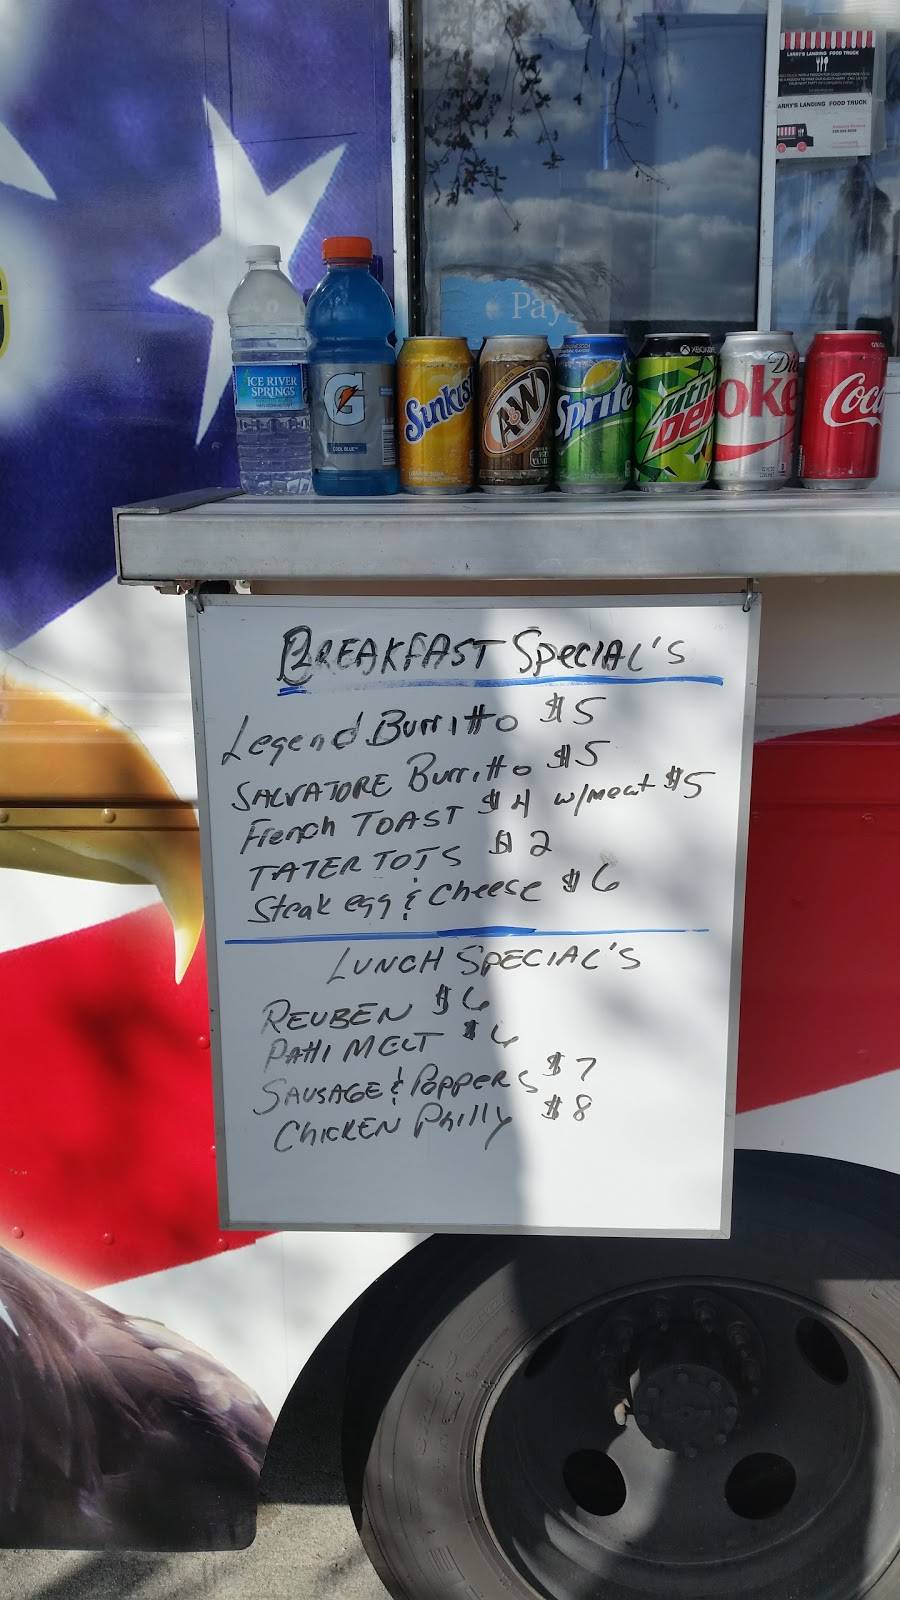 LARRY'S LANDING FOOD TRUCK
LARRY'S LANDING FOOD TRUCK
Pay
ICE RIVER
SPRINGS
G
COOL BLUE
Sunkis
A&W
Sprite
XBOX
Mtn
Dew
Die
oke
Coca
BREAKFAST SPECIAL'S
Legend Burritto $5
SALVATORE Burritto $5
French TOAST $4 w/meat $5
TATER TOTS $2
Steak egg & Cheese $6
LUNCH SPECIAL'S
REUBEN $6
PATTI MELT $6
SAUSAGE & POPPERS $7
CHICKEN Philly $8